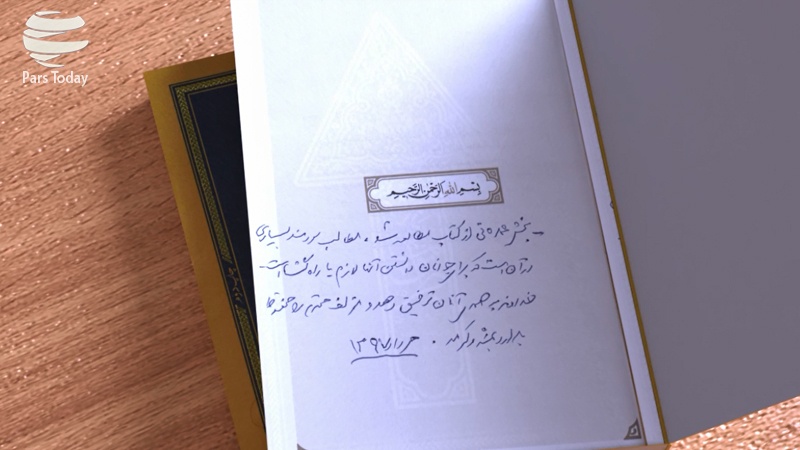 Pars Today
بسم الله الرحمن الرحیم
بخش عمده‌ئی از کتاب مطالعه شد. مطالب سودمند بسیاری
در آن است که برای جوانان دانستن آنها لازم یا راه‌گشا است.
خداوند به همه‌ی آنان توفیق دهد و مؤلف محترم را محفوظ
بدارد بمنّه و کرمه.
مرداد ۱۳۹۷